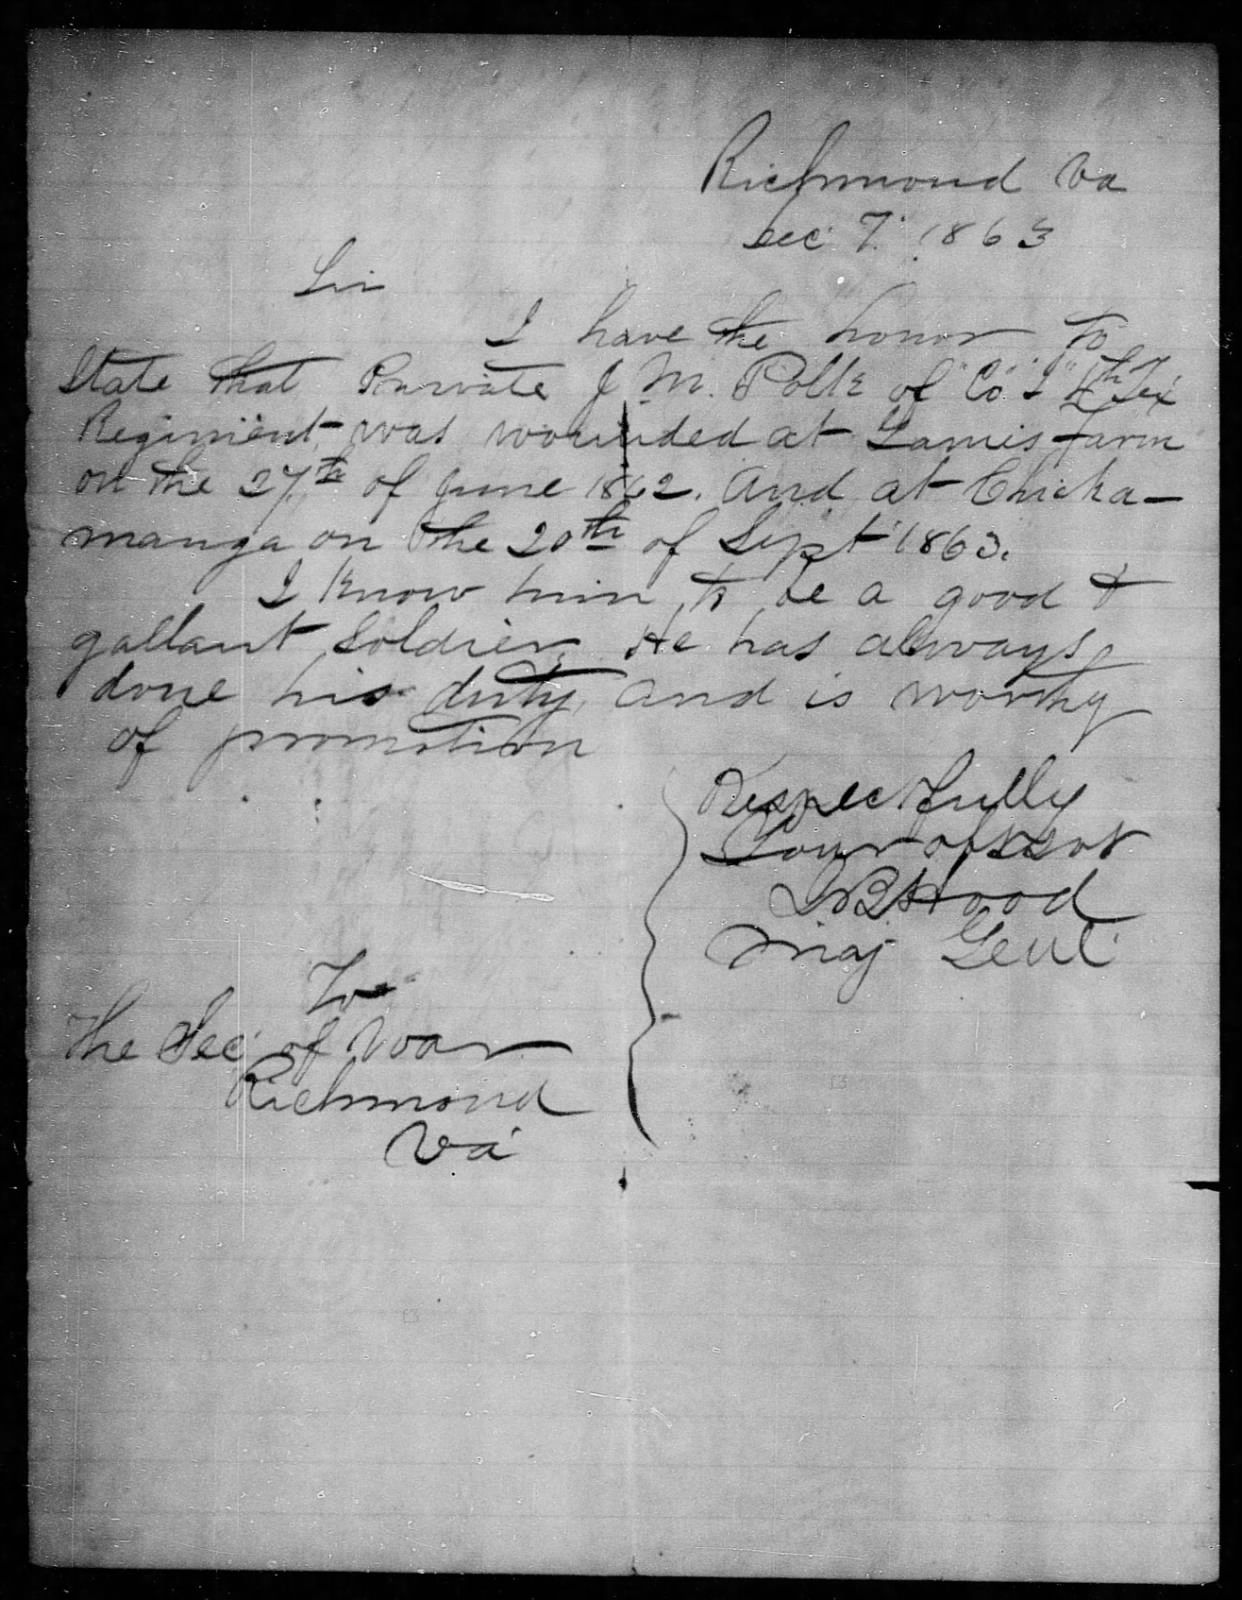 Richmond Va
Dec 7. 1863
Sir
I have the honor to
State that Private J. M. Polk of "Co" "I" 4th Tex
Regiment, was wounded at Gaines farm
on the 27th of June 1862. And at Chicka-
mauga on the 20th of Sept 1863.
I know him to be a good &
gallant Soldier. He has always
done his duty, and is worthy
of promotion
Respectfully
Your obt Svt
J B Hood
Maj Genl
To
The Sec of War
Richmond
Va